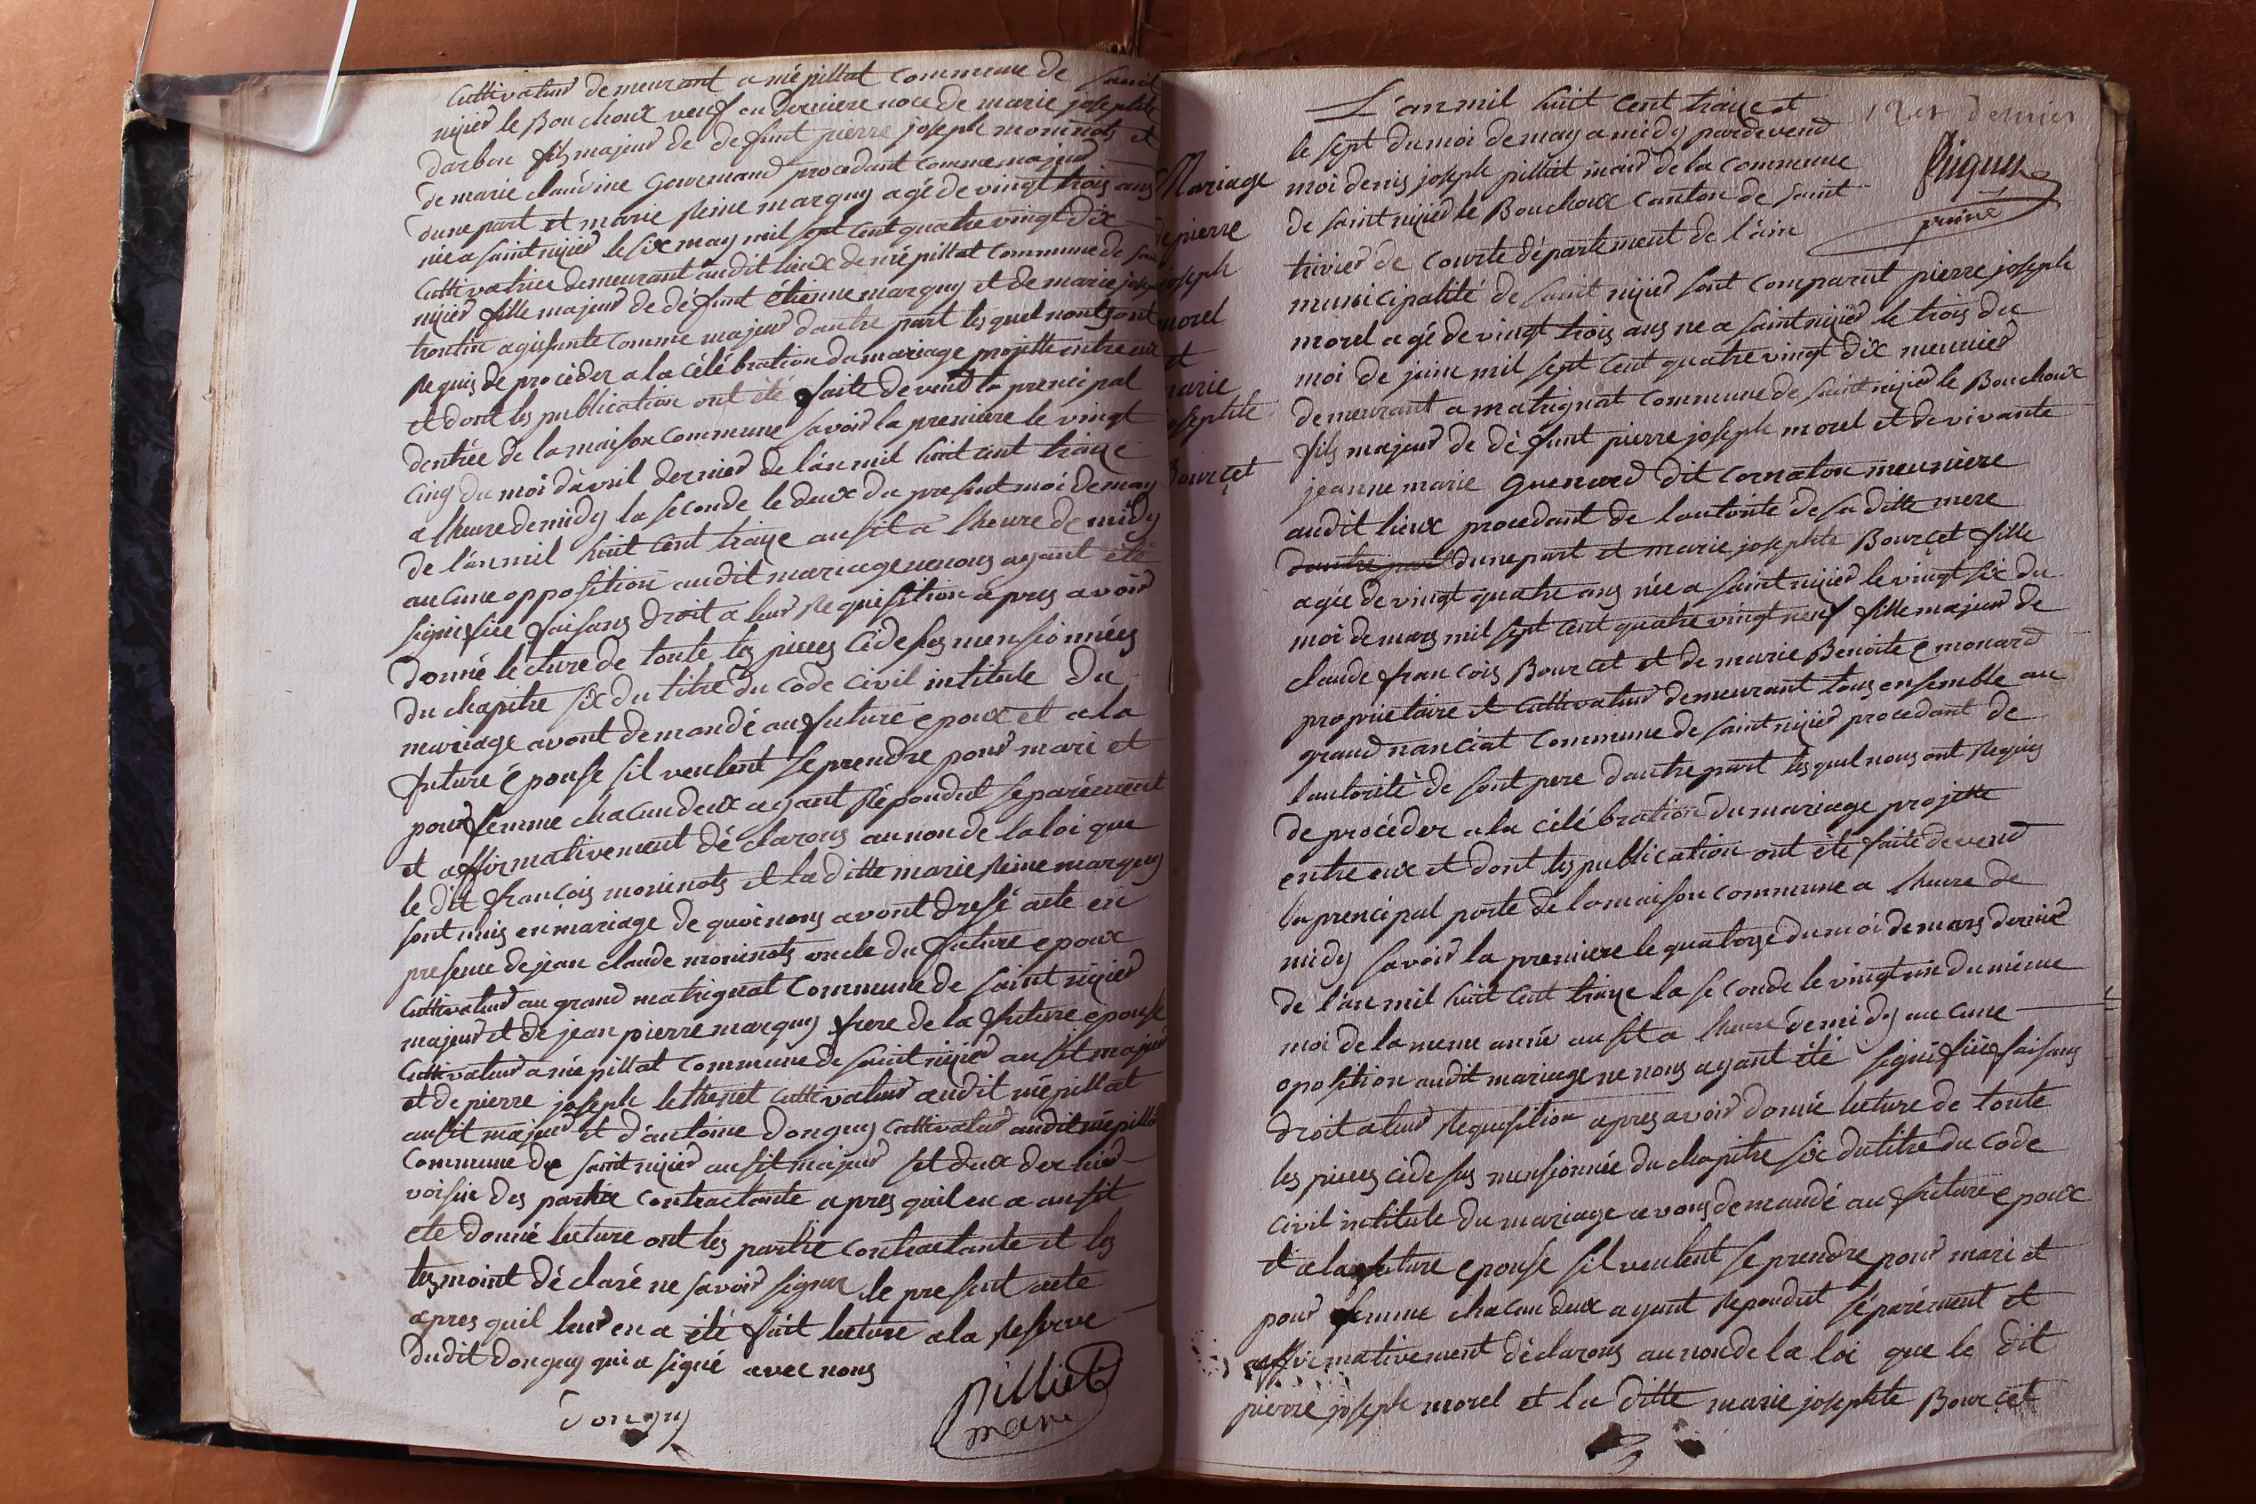 Cultivateur demeurant a mépillat commune de saint
nizier le Bouchoux veuf en derniere noce de marie josephte
darbon fils majeur de defunt pierre joseph moninots et
de marie claudine Gourmand procedant comme majeur
dune part et marie Reine marguy agé de vingt trois ans
née a saint nizier le six may mil sept cent quatre vingt dix
cultivatrice demeurant audit lieux de mépillat commune de sain
nizier fille majeur de défunt étienne marguy et de marie josep
trontin agissante comme majeur dautre part les quel nont sont
Requis de procéder a la célébration du mariage projette entre eux
et dont les publication ont été faite devent la prencipal
dentrée de la maison commune savoir la premiere le vingt
cinq du moi davril dernier de lan mil huit cent traize
a lheure de midy la seconde le deux du present moi de may
de lan mil huit cent traize ausit a lheure de midy
aucune opposition audit mariage ne nous ayant été
signiffiée faisans droit a leur Requisition apres avoir
donné lecture de toute les pieces cidesus mensionnées
du chapitre six du titre du code civil intitule du
mariage avont demandé au future epoux et a la
future épouse sil veulent se prendre pour mari et
pour femme chacun deux ayant Répondut separément
et affirmativement déclarons au non de la loi que
le dit françois moninots et la ditte marie Reine marguy
sont unis en mariage de quoi nous avont dresé acte en
presence de jean claude moninots oncle du future epoux
Cultivateur au grand matrignat Commune de saint nizier
majeur et de jean pierre marguy frere de la future epouse
Cultivateur a mépillat commune de saint nizier ausit majeur
et de pierre joseph lethenet cultivateur audit mépillat
ausit majeur et dantoine donguy cultivateur audit mépillat
Commune de saint nizier ausit majeur set deux dernier
voisin des partie contractante apres quil en a ausit
ete donné lecture ont les partie contractante et les
tesmoint déclaré ne savoir signer le present acte
apres quil leur en a été fait lecture a la Reserve
dudit donguy qui a signé avec nous
donguy
pilliet
maire
Mariage
de pierre
joseph
morel
et
marie
josephte
Bourcet
L'an mil huit cent traize et
le sept du moi de may a midy pardevend
moi denis joseph pilliet mair de la commune
de saint nizier le Bouchoux canton de saint
trivier de courte département de l'ain
municipalité de saint nizier sont comparut pierre joseph
morel agé de vingt trois ans ne a saint nizier le trois du
moi de juin mil sept cent quatre vingt dix meunier
demeurant a matrignat commune de saint nizier le Bouchoux
fils majeur de défunt pierre joseph morel et de vivante
jeanne marie Guenard dit cornaton meuniere
audit lieux procedant de lautorite de sa ditte mere
dautre part dune part et marie josephte Bourcet fille
agée de vingt quatre ans née a saint nizier le vingt six du
moi de mars mil sept cent quatre vingt neuf fille majeur de
claude françois Bourcet et de marie Benoite emonard
proprietaire et cultivateur demeurant tous ensemble au
grand nanciat commune de saint nizier procedant de
lautorité de sont pere dautre part les quel nous ont Requis
de procéder a la célébration du mariage projette
entre eux et dont les publication ont ete faite devend
la prencipal porte de la maison commune a lheure de
midy savoir la premiere le quatorze du moi de mars dernier
de l'an mil huit cent traize la seconde le vingt un du même
moi de la meme année ausit a lheure de midy aucune
oposition audit mariage ne nous ayant été signiffiée faisans
droit a leur Requisition apres avoir donné lecture de toute
les pieces cidesus mensionnée du chapitre six du titre du code
civil intitule du mariage avons demandé au future epoux
et a la future epouse sil veulent se prendre pour mari et
pour femme chacun deux ayant Repondut séparément et
affirmativement déclarons au non de la loi que le dit
pierre joseph morel et la ditte marie josephte Bourcet
12er dernier